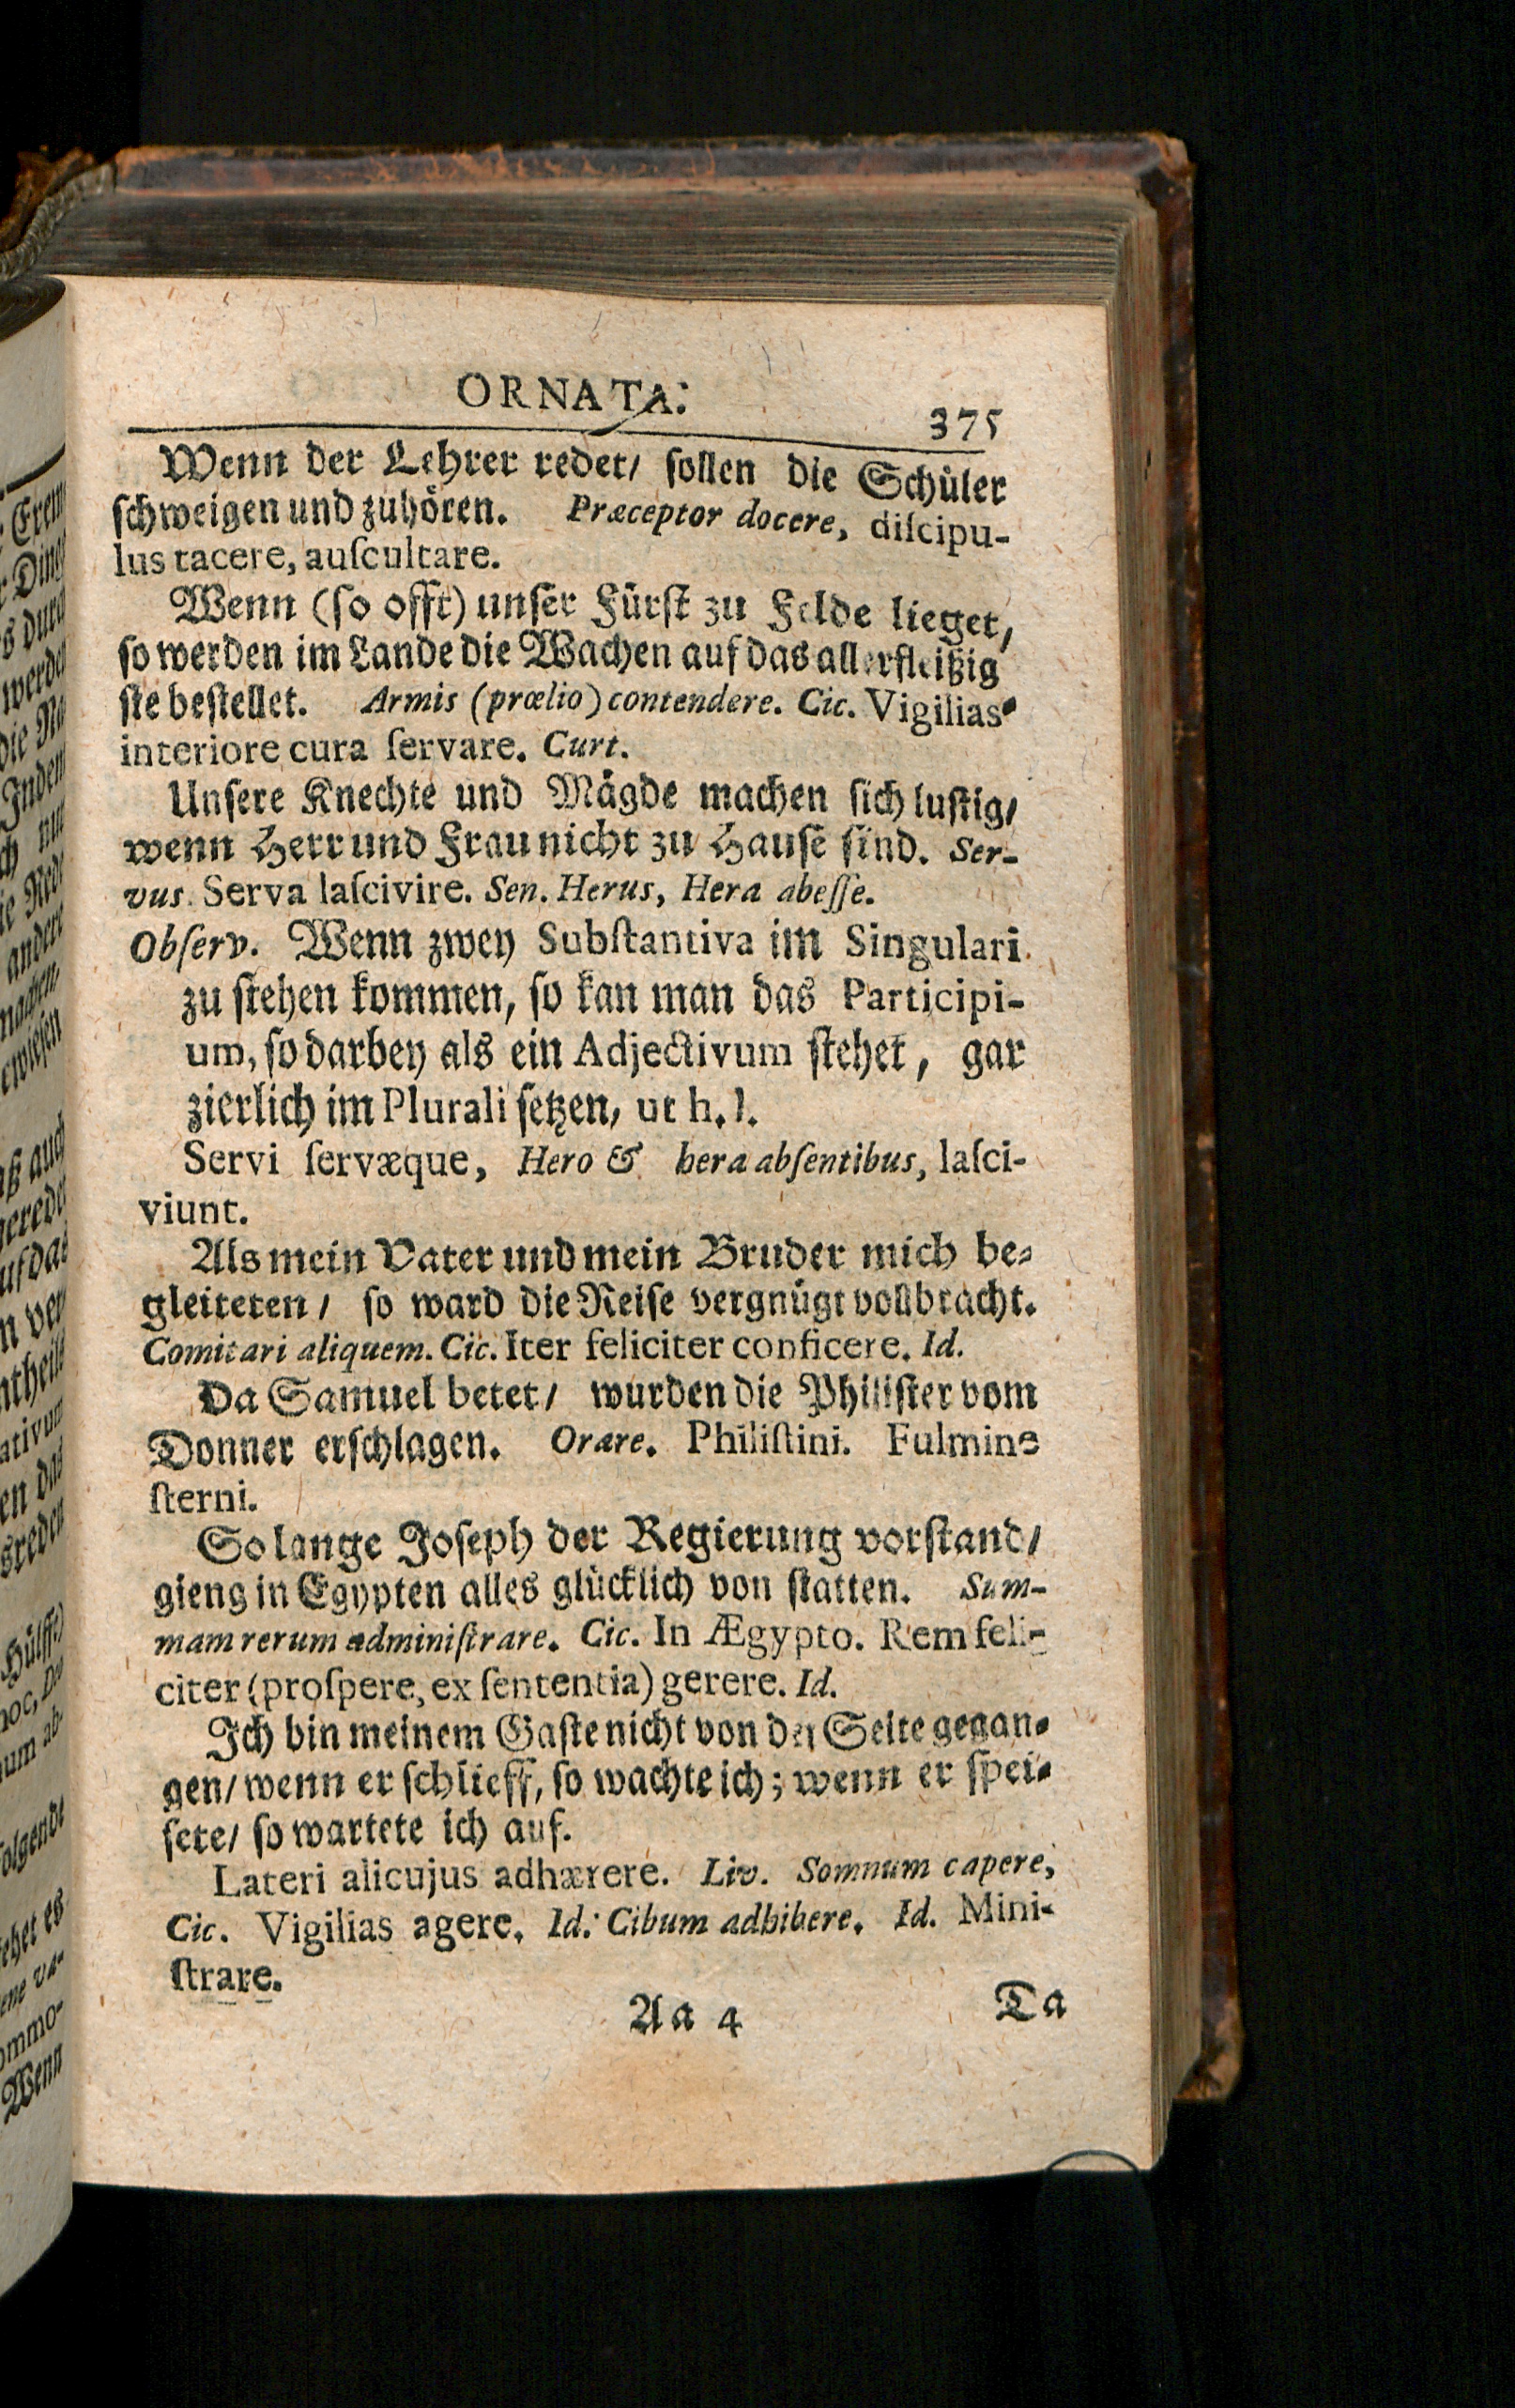 ORNATA.
375
Wenn der Lehrer redet/ sollen die Schüler
schweigen und zuhören. Præceptor docere, discipu-
lus tacere, auscultare.
Wenn (so offt) unser Fürst zu Felde lieget,
so werden im Lande die Wachen auf das allerfleißig
ste bestellet. Armis (prœlio) contendere. Cic. Vigilias
interiore cura servare. Curt.
Unsere Knechte und Mägde machen sich lustig/
wenn Herr und Frau nicht zu Hause sind. Ser-
vus. Serva lascivire. Sen. Herus, Hera abesse.
Observ. Wenn zwey Substantiva im Singulari
zu stehen kommen, so kan man das Participi-
um, so darbey als ein Adjectivum stehet, gar
zierlich im Plurali setzen, ut h. l.
Servi servæque, Hero & hera absentibus, lasci-
viunt.
Als mein Vater und mein Bruder mich be-
gleiteten / so ward die Reise vergnügt vollbracht.
Comitari aliquem. Cic. Iter feliciter conficere. Id.
Da Samuel betet/ wurden die Philister vom
Donner erschlagen. Orare. Philistini. Fulmine
sterni.
So lange Joseph der Regierung vorstand/
gieng in Egypten alles glücklich von statten. Sum-
mam rerum administrare. Cic. In Ægypto. Rem feli-
citer (prospere, ex sententia) gerere. Id.
Ich bin meinem Gaste nicht von der Seite gegan-
gen/ wenn er schlieff, so wachte ich; wenn er spei-
sete/ so wartete ich auf.
Lateri alicujus adhærere. Liv. Somnum capere,
Cic. Vigilias agere, Id. Cibum adhibere. Id. Mini-
strare.
Aa 4
Da